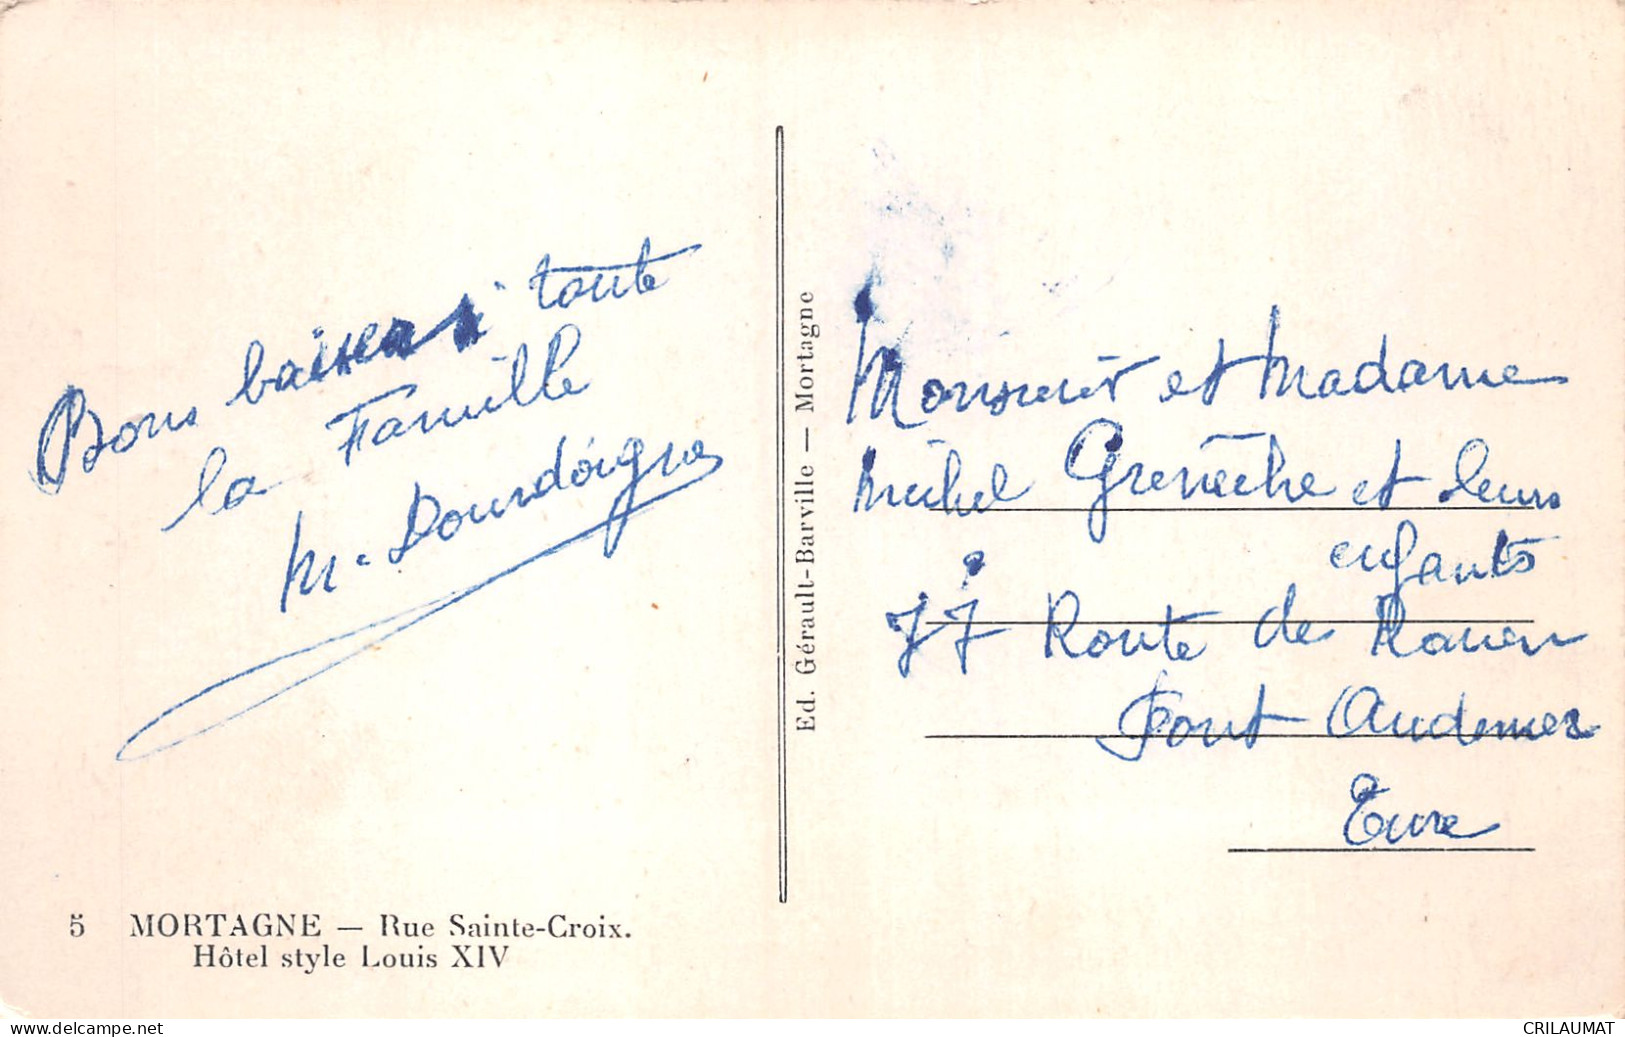 Bons baisers à toute
la Famille
M. Dourdoigne
5 MORTAGNE — Rue Sainte-Croix.
Hôtel style Louis XIV
Ed. Gérault-Barville — Mortagne
Monsieur et Madame
Michel Grenèche et leurs
enfants
77 Route de Rouen
Pont Audemer
Eure
https://www.delcampe.net
CRILAUMAT